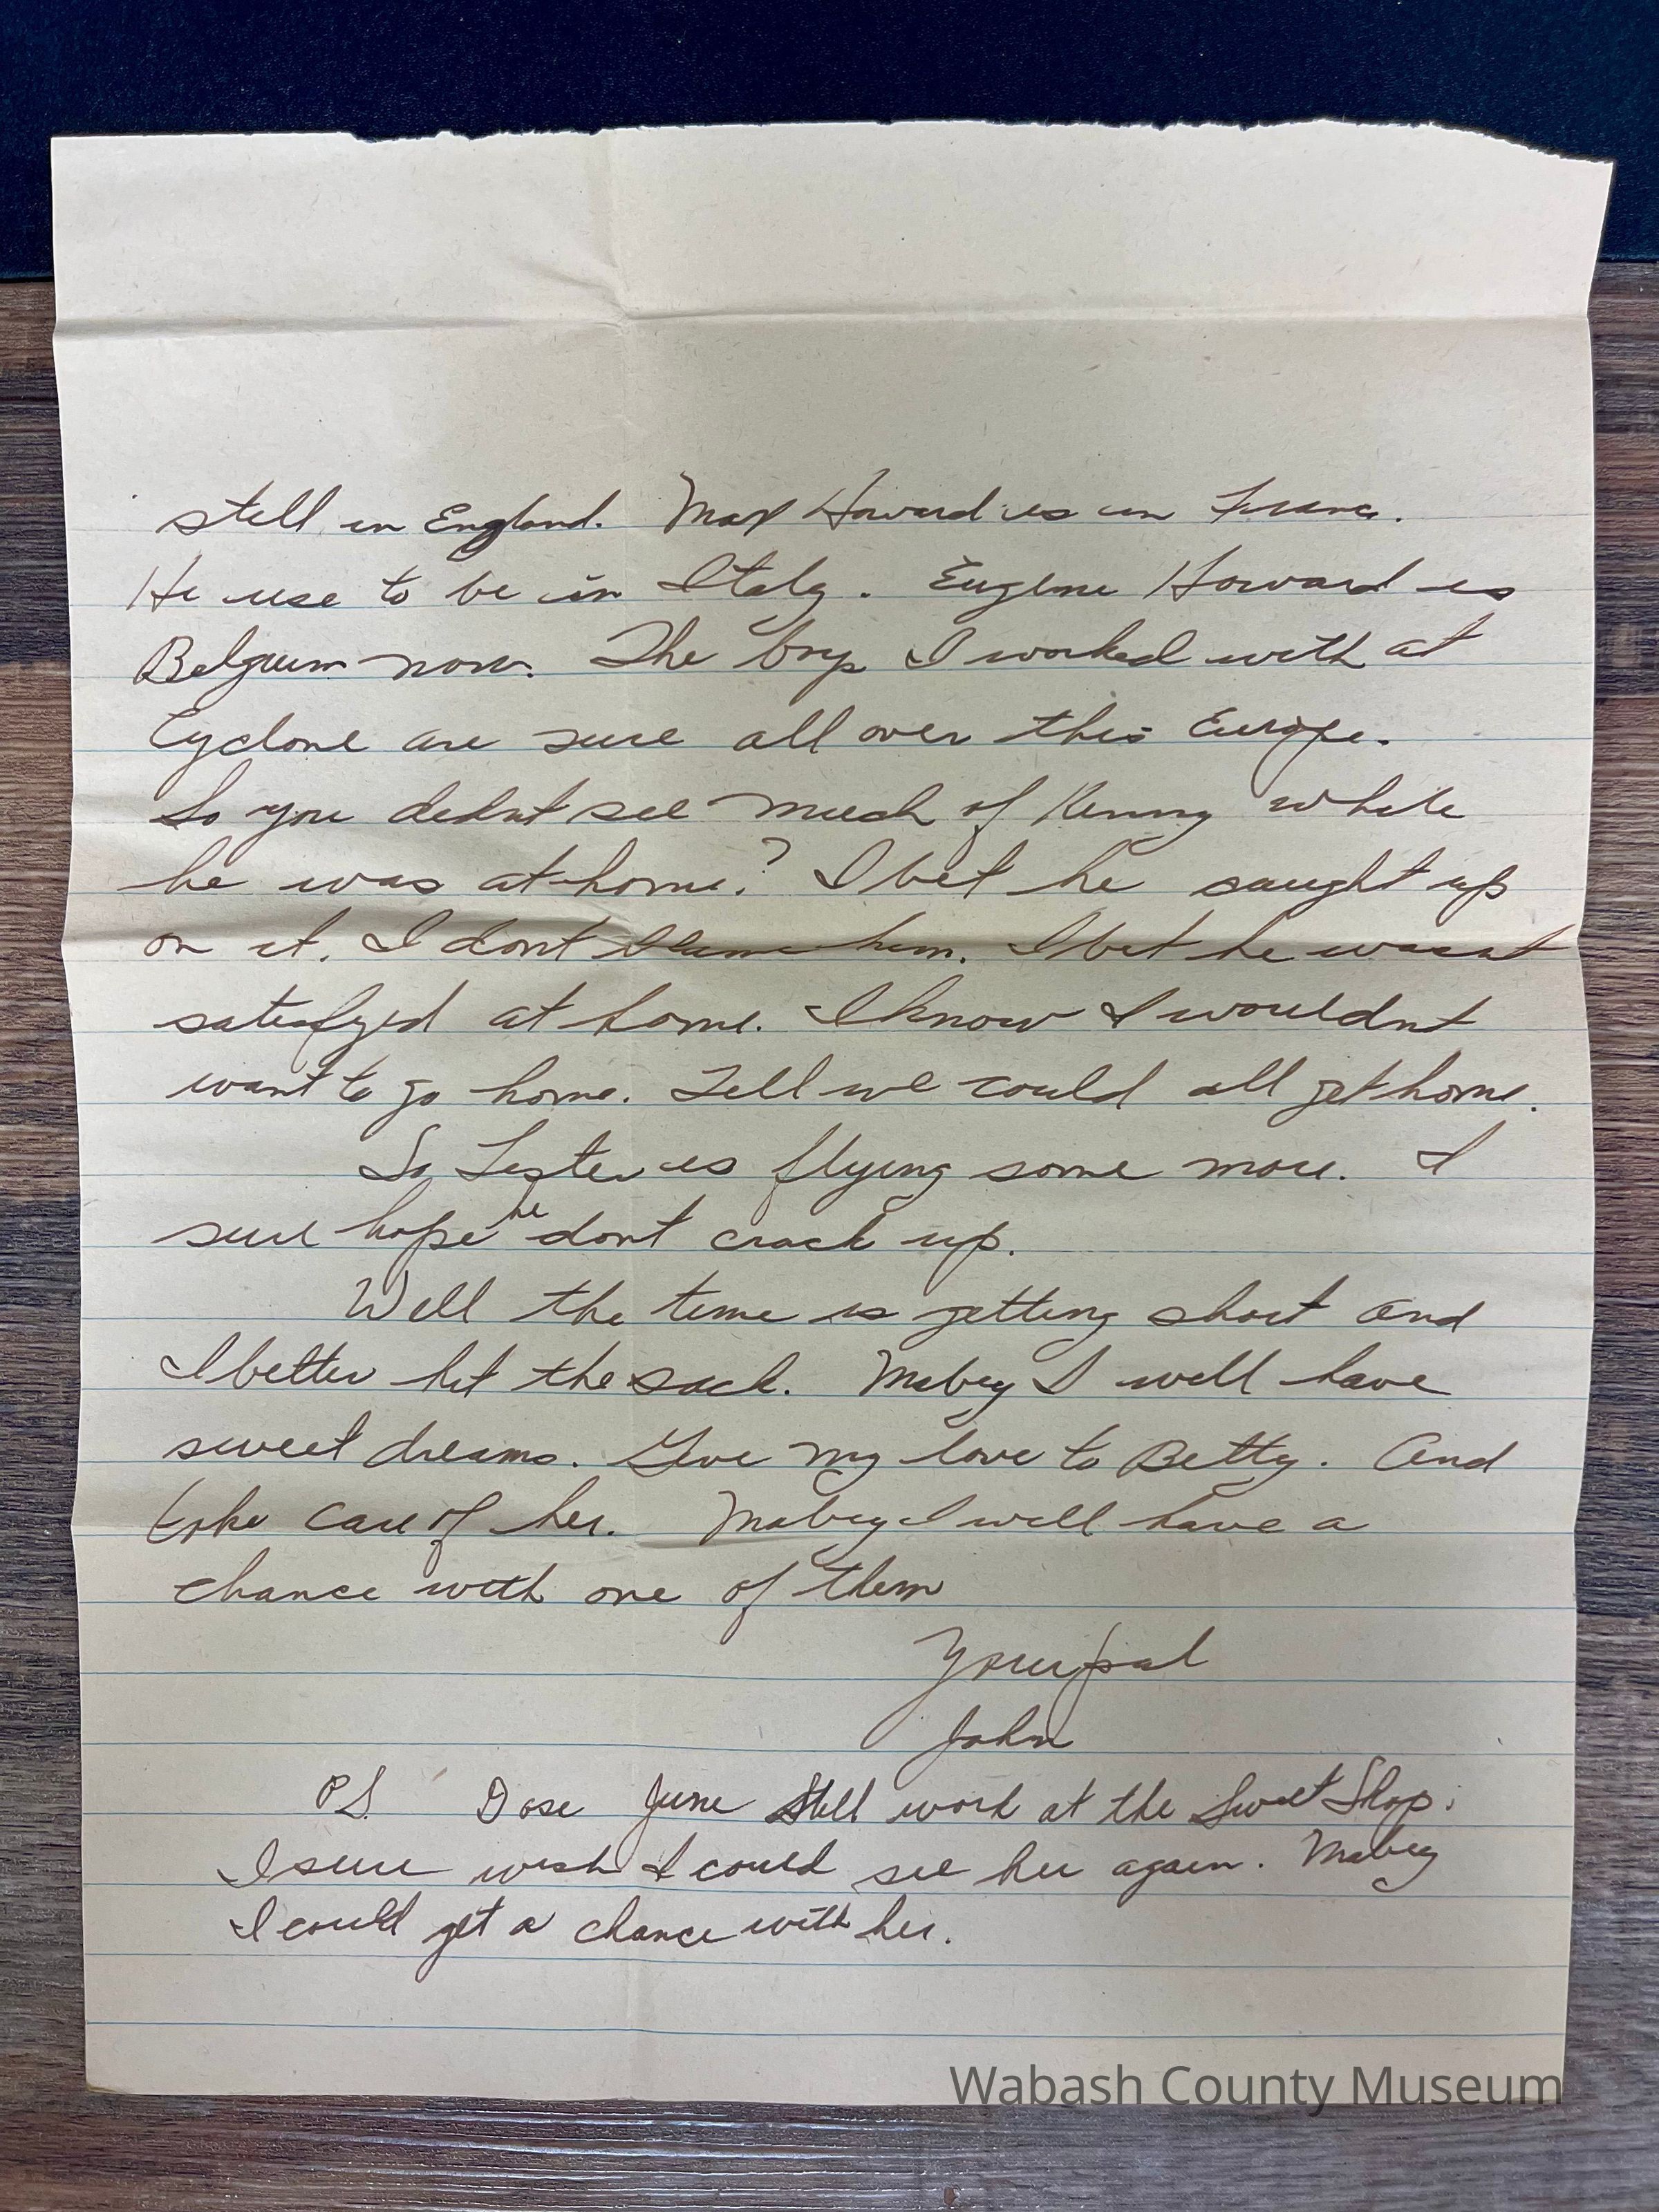 still in England. Max Howard is in France.
He use to be in Italy. Eugene Howard is
Belgium now. The boys I worked with at
Cyclone are sure all over this Europe.
So you didnt see much of Kenny while
he was at home? I bet he caught up
on it. I dont blame him. I bet he wasnt
satisfyed at home. I know I wouldnt
want to go home. Tell we could all get home.
So Lester is flying some more. I
sure hope he dont crack up.
Well the time is getting short and
I better hit the sack. Mabey I will have
sweet dreams. Give my love to Betty. And
take care of her. Mabey I will have a
chance with one of them
Your pal
John
P.S. Dose June still work at the Sweet Shop.
I sure wish I could see her again. Mabey
I could get a chance with her.
Wabash County Museum